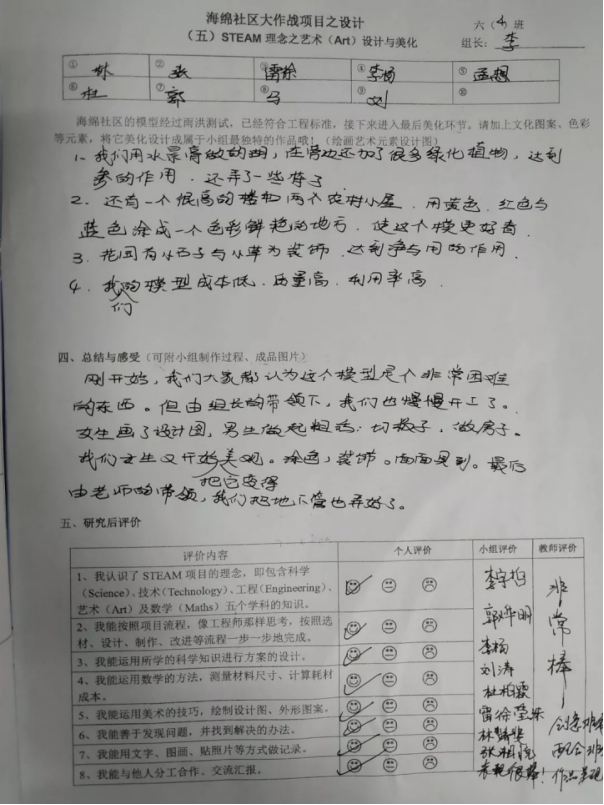 海绵社区大作战项目之设计
(五)STEAM 理念之艺术(Art)设计与美化
六(4)班
组长:李
① 林 ② 张 ③ 雷徐 ④ 李杨 ⑤ 孟想
⑥ 杜 ⑦ 郭 ⑧ 马 ⑨ 刘 ⑩
海绵社区的模型经过雨洪测试,已经符合工程标准,接下来进入最后美化环节。请加上文化图案、色彩
等元素,将它美化设计成属于小组最独特的作品哦!(绘画艺术元素设计图)
1、我们用水景膏做的湖,在旁边还加了很多绿化植物,达到
的作用.还弄了一些房子
2、还有一个很高的楼和两个农村小屋.用黄色.红色与
蓝色涂成一个色彩鲜艳的地方.使这个模更好奇.
3、花园有小石子与小草为装饰.达到净与用的作用.
4、我们的模型成本低.质量高.利用率高.
四、总结与感受(可附小组制作过程、成品图片)
刚开始,我们大家都认为这个模型是个非常困难
的东西。但由组长的带领下,我们也慢慢开工了。
女生画了设计图,男生做起粗活:切板子,做房子。
我们女生又开始把它变得美观。涂色,装饰。面面具到。最后
由老师的带领,我们把地下管也弄好了。
五、研究后评价
评价内容 个人评价 小组评价 教师评价
1、我认识了 STEAM 项目的理念,即包含科学
(Science)、技术(Technology)、工程(Engineering)、
艺术(Art)及数学(Maths)五个学科的知识。
2、我能按照项目流程,像工程师那样思考,按照选
材、设计、制作、改进等流程一步一步地完成。
3、我能运用所学的科学知识进行方案的设计。
4、我能运用数学的方法,测量材料尺寸、计算耗材
成本。
5、我能运用美术的技巧,绘制设计图、外形图案。
6、我能善于发现问题,并找到解决的办法。
7、我能用文字、图画、贴照片等方式做记录。
8、我能与他人分工合作、交流汇报。
李杨
刘涛
杜柏霖
非常棒!